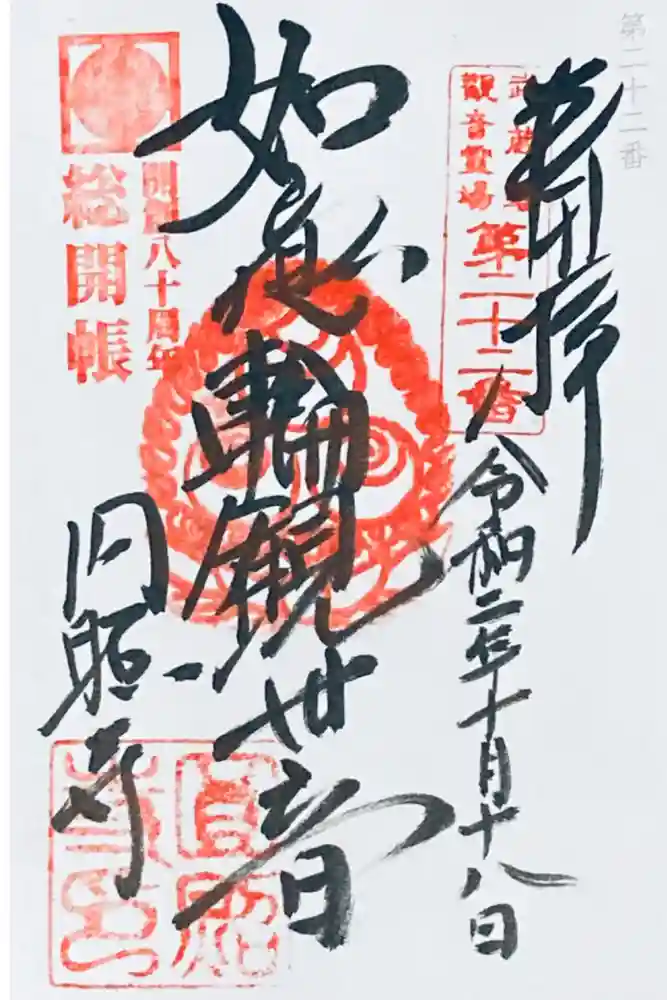 第二十二番
奉拝
武蔵野
觀音霊場
第二十二番
令和二年十月十八日
如意輪觀世音
開創八十周年
総開帳
円照寺
圓照
寺印